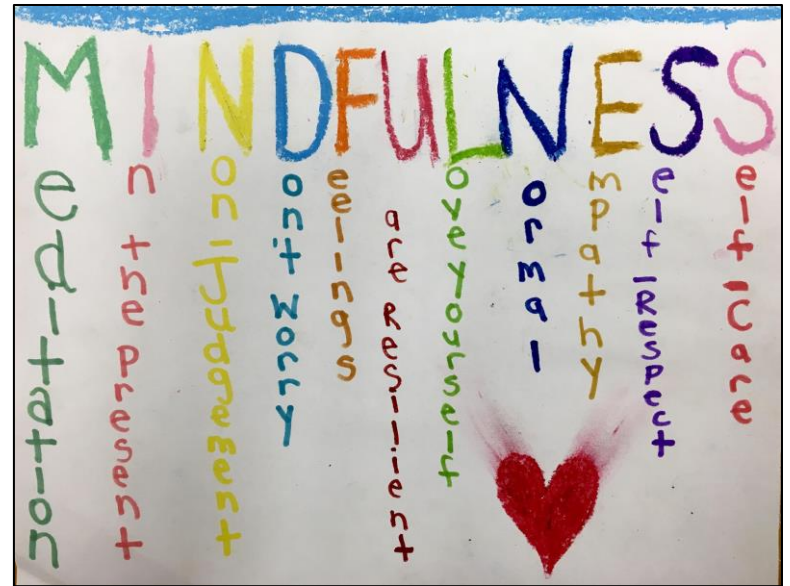 MINDFULNESS
editation
n the present
on-Judgement
on't worry
eelings
are Resilient
ove yourself
ormal
mpathy
elf-Respect
elf-Care